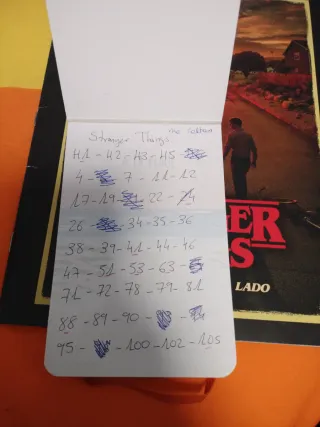 Stranger Things
41 - 42 - 43 - 45 -
4 - 7 - 11 - 12
17 - 19 - 22 -
26 - 34 - 35 - 36
38 - 39 - 41 - 44 - 46
47 - 51 - 53 - 63 -
71 - 72 - 78 - 79 - 81
88 - 89 - 90 -
95 - 100 - 102 - 105
ER
S
LADO